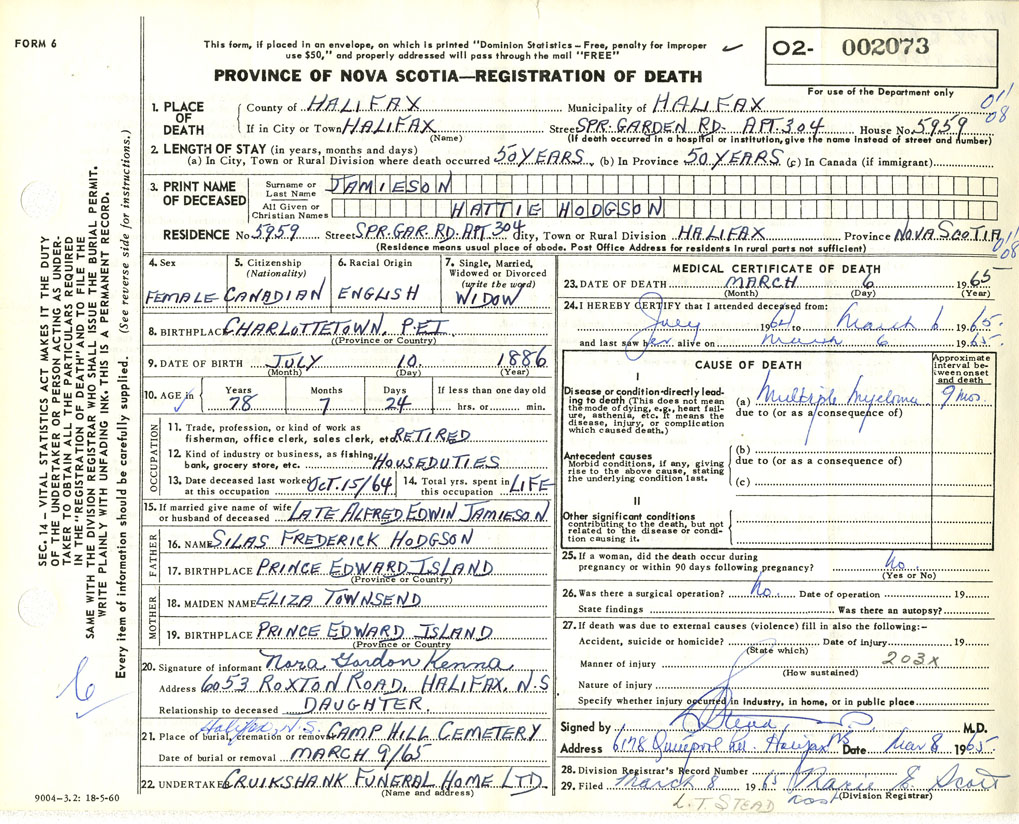 FORM 6
This form, if placed in an envelope, on which is printed "Dominion Statistics – Free, penalty for improper
use $50," and properly addressed will pass through the mail "FREE"
02- 002073
For use of the Department only
PROVINCE OF NOVA SCOTIA—REGISTRATION OF DEATH
011
08
1. PLACE OF DEATH
County of HALIFAX Municipality of HALIFAX
If in City or Town HALIFAX Street SPR. GARDEN RD. APT. 304 House No. 5959
(Name) (If death occurred in a hospital or institution, give the name instead of street and number)
2. LENGTH OF STAY (in years, months and days)
(a) In City, Town or Rural Division where death occurred 50 YEARS (b) In Province 50 YEARS (c) In Canada (if immigrant)
3. PRINT NAME OF DECEASED
Surname or Last Name JAMIESON
All Given or Christian Names HATTIE HODGSON
RESIDENCE No 5959 Street SPR. GAR. RD. APT. 304 City, Town or Rural Division HALIFAX Province NOVA SCOTIA
(Residence means usual place of abode. Post Office Address for residents in rural parts not sufficient)
011
08
4. Sex FEMALE
5. Citizenship (Nationality) CANADIAN
6. Racial Origin ENGLISH
7. Single, Married, Widowed or Divorced (write the word) WIDOW
8. BIRTHPLACE CHARLOTTETOWN, P.E.I.
(Province or Country)
9. DATE OF BIRTH JULY 10 1886
(Month) (Day) (Year)
10. AGE in Years 78 Months 7 Days 24 If less than one day old hrs. or min.
OCCUPATION
11. Trade, profession, or kind of work as
fisherman, office clerk, sales clerk, etc. RETIRED
12. Kind of industry or business, as fishing,
bank, grocery store, etc. HOUSEDUTIES
13. Date deceased last worked at this occupation OCT. 15/64
14. Total yrs. spent in this occupation LIFE
15. If married give name of wife
or husband of deceased LATE ALFRED EDWIN JAMIESON
FATHER
16. NAME SILAS FREDERICK HODGSON
17. BIRTHPLACE PRINCE EDWARD ISLAND
(Province or Country)
MOTHER
18. MAIDEN NAME ELIZA TOWNSEND
19. BIRTHPLACE PRINCE EDWARD ISLAND
(Province or Country)
20. Signature of informant Nora Gordon Kenna
Address 6053 ROXTON ROAD, HALIFAX, N.S
Relationship to deceased DAUGHTER
Halifax, N.S.
21. Place of burial, cremation or removal CAMP HILL CEMETERY
Date of burial or removal MARCH 9/65
22. UNDERTAKER CRUIKSHANK FUNERAL HOME LTD.
(Name and address)
MEDICAL CERTIFICATE OF DEATH
23. DATE OF DEATH MARCH 6 1965
(Month) (Day) (Year)
24. I HEREBY CERTIFY that I attended deceased from:
July 1964 to March 6 1965
and last saw her alive on March 6 1965
CAUSE OF DEATH
Approximate interval between onset and death
I
Disease or condition directly leading to death (This does not mean the mode of dying, e.g., heart failure, asthenia, etc. It means the disease, injury, or complication which caused death.)
(a) Multiple Myeloma 9 mos.
due to (or as a consequence of)
Antecedent causes
Morbid conditions, if any, giving rise to the above cause, stating the underlying condition last.
(b)
due to (or as a consequence of)
(c)
II
Other significant conditions
contributing to the death, but not related to the disease or condition causing it.
25. If a woman, did the death occur during
pregnancy or within 90 days following pregnancy? No
(Yes or No)
26. Was there a surgical operation? No. Date of operation 19
State findings Was there an autopsy?
27. If death was due to external causes (violence) fill in also the following:–
Accident, suicide or homicide? Date of injury 19
(State which)
Manner of injury 203x
(How sustained)
Nature of injury
Specify whether injury occurred in industry, in home, or in public place
Signed by Stead M.D.
Address 6178 Quinpool Rd. Halifax NS Date Mar 8 1965
28. Division Registrar's Record Number
29. Filed March 8 1965 Marie E. Scott
(Division Registrar)
L. T. STEAD
SEC. 14 – VITAL STATISTICS ACT MAKES IT THE DUTY
OF THE UNDERTAKER OR PERSON ACTING AS UNDER-
TAKER TO OBTAIN ALL THE PARTICULARS REQUIRED
IN THE "REGISTRATION OF DEATH" AND TO FILE THE
SAME WITH THE DIVISION REGISTRAR WHO SHALL ISSUE THE BURIAL PERMIT.
WRITE PLAINLY WITH UNFADING INK. THIS IS A PERMANENT RECORD.
Every item of information should be carefully supplied. (See reverse side for instructions.)
6
9004-3.2: 18-5-60